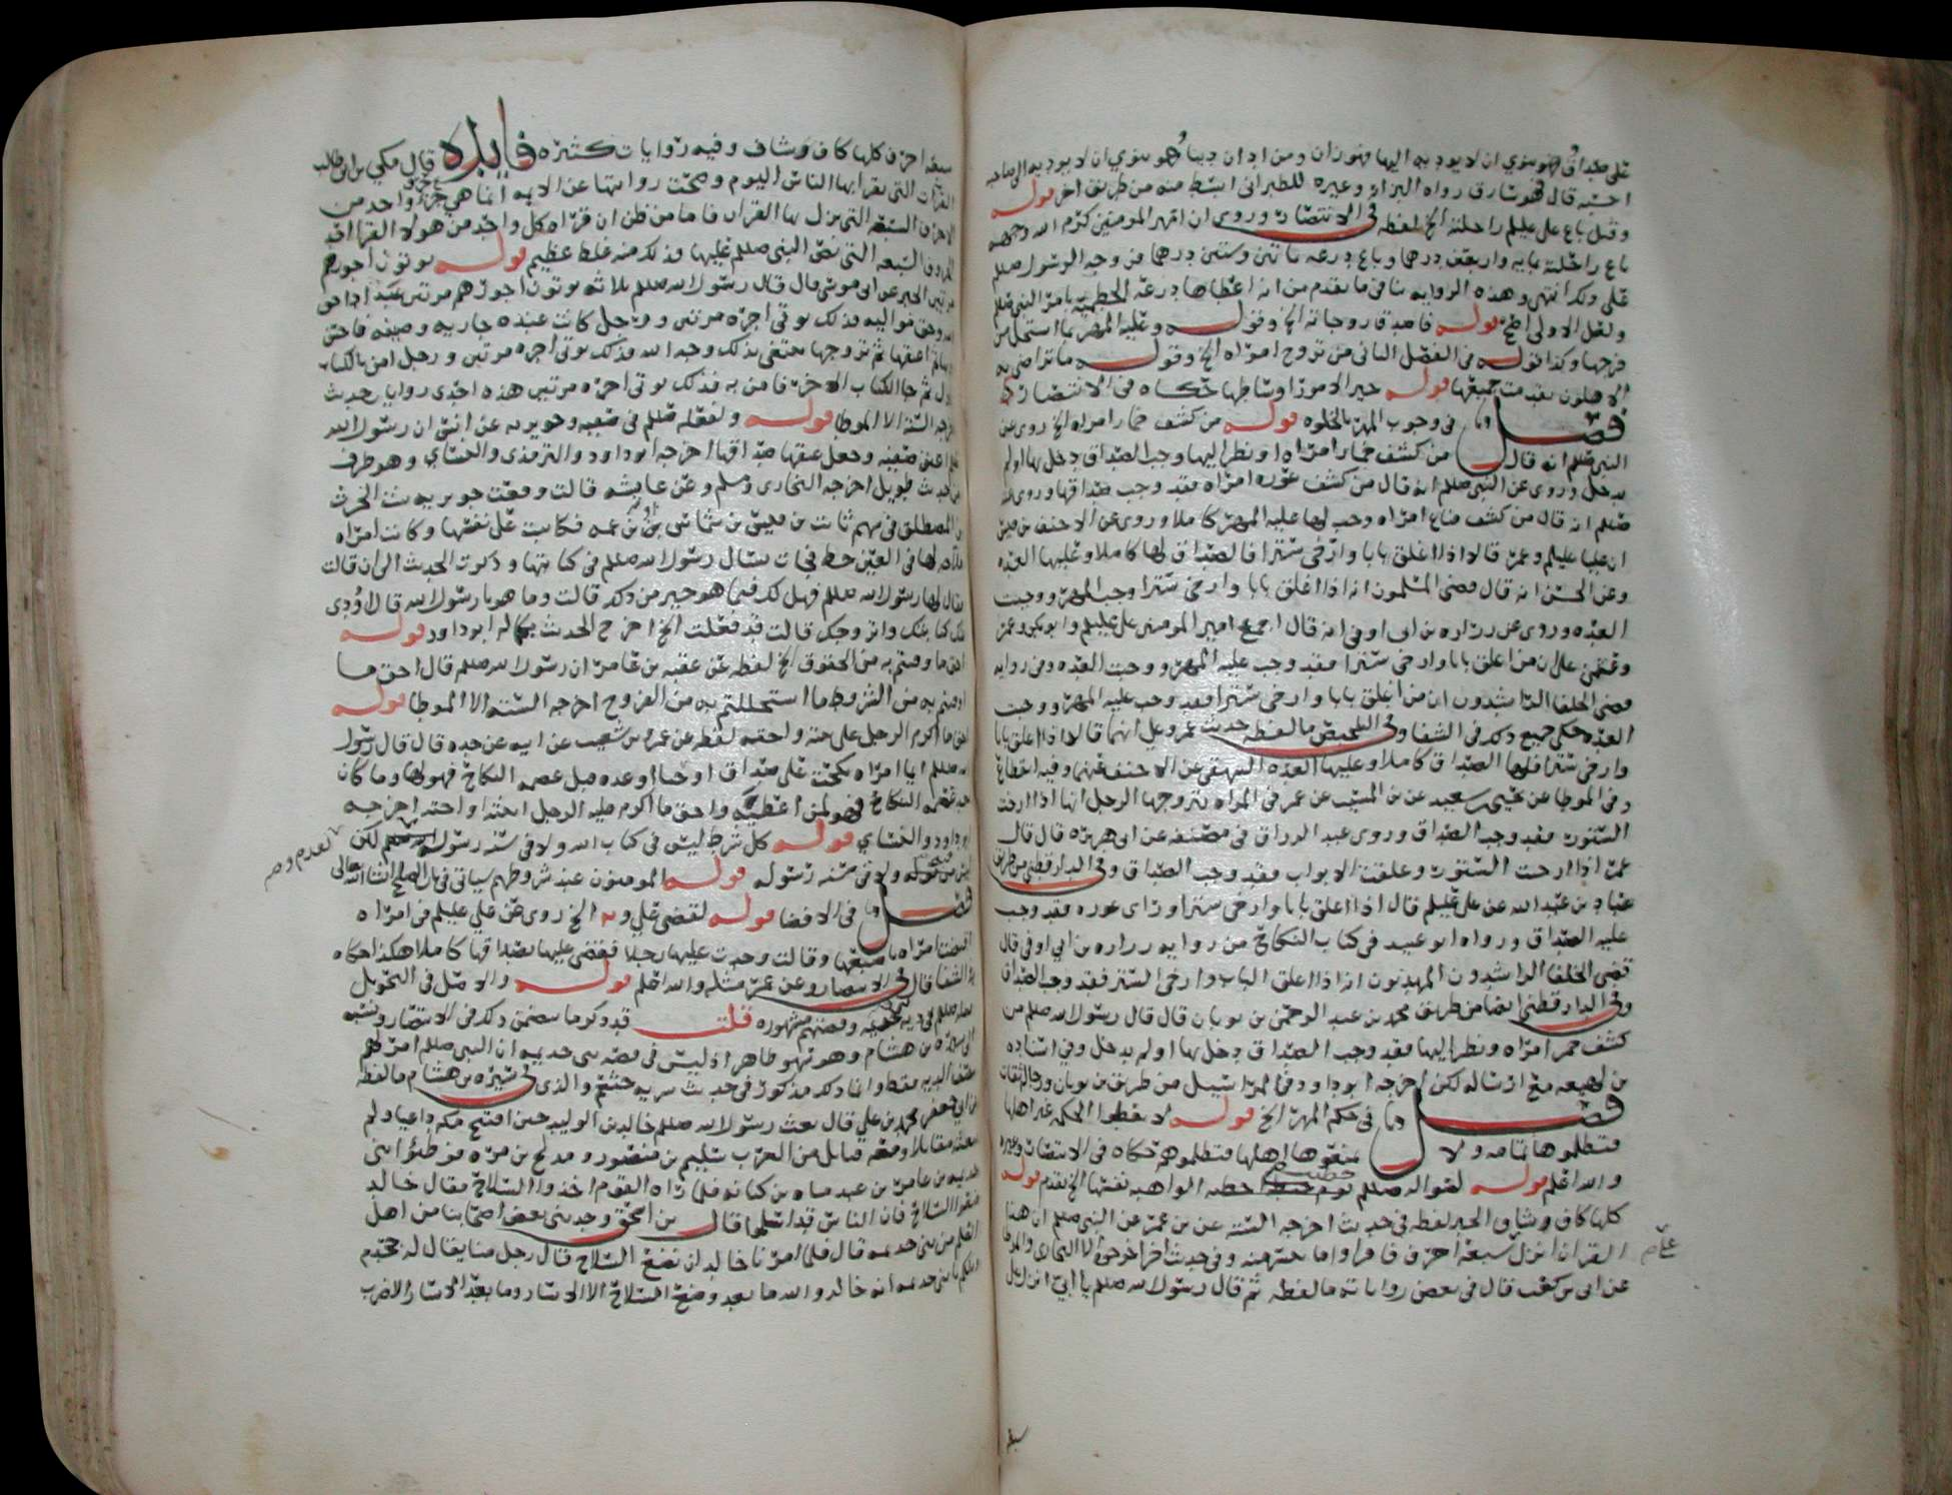 على صداق فهو ينوي ان لا يوديه اليها فهو زان ومن ادان دينا وهو ينوي ان لا يوديه الى صاحبه
احسبه قال فهو سارق رواه البزار وغيره للطبراني ابسط منه من طريق اخر قوله
وقيل باع علي عليلم راحلته الخ لفظه في الانتصار وروي ان امير المومنين كرم الله وجهه
باع راحلته بمايه واربعين درهما وباع درعه بمائتين وستين درهما من وجه الرسول صللم
على ذلك انتهى وهذه الروايه تنافي ما تقدم من انه اعطاها درعه الحطميه بامر النبي صللم
ولعل الاولى اصح قوله فاصدق زوجاته الخ وقوله وعليه المهر بما استحل من
فرجها وكذا قوله في الفصل الثاني من تزوج امراه الخ وقوله ما تراضى به
الاهلون تقدمت جميعها قوله خير الامور اوساطها حكاه في الانتصار
فصل في وجوب المهر بالخلوه قوله من كشف خمار امراه الخ روي عن
النبي صللم انه قال من كشف خمار امراه او نظر اليها وجب الصداق دخل بها او لم
يدخل وروي عن النبي صللم انه قال من كشف عوره امراه فقد وجب صداقها وروي عنه
صللم انه قال من كشف قناع امراه وجب لها عليه المهر كاملا وروي عن الاحنف بن قيس
ان عليا عليلم وعمر قالا اذا اغلق بابا وارخى سترا فالصداق لها كاملا وعليها العده
وعن الحسن انه قال قضى المسلمون انه اذا اغلق بابا وارخى سترا وجب المهر ووجبت
العده وروي عن زراره بن ابي اوفى انه قال اجمع امير المومنين علي عليلم وابو بكر وعمر
وعثمن على ان من اغلق بابا وارخى سترا فقد وجب عليه المهر ووجبت العده وفي روايه
قضى الخلفا الراشدون ان من اغلق بابا وارخى سترا فقد وجب عليه المهر ووجبت
العده حكى جميع ذلك في الشفا وفي التلخيص ما لفظه حديث عمر وعلي انهما قالا اذا اغلق بابا
وارخى سترا فلها الصداق كاملا وعليها العده البيهقي عن الاحنف عنهما وفيه انقطاع
وفي الموطا عن يحيى بن سعيد عن بن المسيب عن عمر في المراه يتزوجها الرجل انها اذا ارخت
الستور فقد وجب الصداق وروى عبد الرزاق في مصنفه عن ابي هريره قال قال
عمر اذا ارخيت الستور وعلقت الابواب فقد وجب الصداق وفي الدارقطني من طريق
عباد بن عبد الله عن علي عليلم قال اذا اغلق بابا وارخى سترا وراى عوره فقد وجب
عليه الصداق ورواه ابو عبيد في كتاب النكاح من روايه زراره بن ابي اوفى قال
قضى الخلفا الراشدون المهديون انه اذا اغلق الباب وارخى الستر فقد وجب الصداق
وفي الدارقطني ايضا من طريق محمد بن عبد الرحمن بن ثوبان قال قال رسول الله صللم من
كشف خمر امراه ونظر اليها فقد وجب الصداق دخل بها او لم يدخل وفي اسناده
بن لهيعه مع ارساله لكن اخرجه ابو داود في المراسيل من طريق بن ثوبان ورجاله ثقات
فصل في حكم المهر الخ قوله لا تعطوا الحكمه غير اهلها
فتظلموها بتمامه ولا تمنعوها اهلها فتظلموهم حكاه في الانتصار وغيره
والله اعلم قوله لقوله صللم يوم خطبه الواهبه نفسها الخ تقدم قوله
كلها كاف وشاف الخبر لفظه في حديث اخرجه السته عن بن عمر عن النبي صللم ان هذا
القران انزل على سبعه احرف فاقراوا ما تيسر منه وفي حديث اخر اخرجوه الا البخاري والموطا
عن ابي بن كعب قال في بعض رواياته ما لفظه ثم قال رسول الله صللم يا ابي انزل علي
سبعه
سبعه احرف كلها كاف وشاف وفيه روايات كثيره فايده قال مكي بن ابي طالب
القراات التي يقرا بها الناس اليوم وصحت روايتها عن الايمه انما هي جزء واحد من
الاحرف السبعه التي نزل بها القران فاما من ظن ان قراه كل واحد من هولا القرا
الحروف السبعه التي نص النبي صللم عليها فذلك منه غلط عظيم قوله يوتون اجورهم
مرتين الخبر عن ابي موسى قال قال رسول الله صللم ثلاثه يوتون اجورهم مرتين عبد ادا حق
الله وحق مواليه فذلك يوتى اجره مرتين ورجل كانت عنده جاريه وصيفه فاحسن
ادبها ثم اعتقها ثم تزوجها يبتغي بذلك وجه الله فذلك يوتى اجره مرتين ورجل امن بالكتاب
الاول ثم جا الكتاب الاخر فامن به فذلك يوتى اجره مرتين هذه احدى روايات حديث
اخرجه السته الا الموطا قوله ولفعله صللم في صفيه وجويريه عن انس ان رسول الله
صللم اعتق صفيه وجعل عتقها صداقها اخرجه ابو داود والترمذي والنساي وهو طرف
من حديث طويل اخرجه البخاري ومسلم وعن عايشه قالت وقعت جويريه بنت الحرث
بن المصطلق في سهم ثابت بن قيس بن شماس او بن عمه فكاتبت على نفسها وكانت امراه
ملاحه لها في العين حظ فجات تسال رسول الله صللم في كتابتها وذكرت الحديث الى ان قالت
فقال لها رسول الله صللم فهل لك فيما هو خير من ذلك قالت وما هو يا رسول الله قال اؤدي
عنك كتابتك واتزوجك قالت قد فعلت الخ اخرج الحديث بكماله ابو داود قوله
احق ما وفيتم به من الحقوق الخ لفظه عن عقبه بن عامر ان رسول الله صللم قال احق ما
اوفيتم به من الشروط ما استحللتم به من الفروج اخرجه السته الا الموطا قوله
احق ما اكرم الرجل على بنته واخته لفظه عن عمرو بن شعيب عن ابيه عن جده قال قال رسول
الله صللم ايما امراه نكحت على صداق او حبا او عده قبل عصمه النكاح فهو لها وما كان
بعد عصمه النكاح فهو لمن اعطيه واحق ما اكرم عليه الرجل ابنته او اخته اخرجه
ابو داود والنساي قوله كل شرط ليس في كتاب الله ولا في سنه رسوله لكن
ليس من قوله ولا في سنه رسوله قوله المومنون عند شروطهم سياتي في باب الصلح ان شا الله تعالى
فصل في الافضا قوله لقضى علي و الخ روي عن علي عليلم في امراه
افضت امراه باصبعها وقالت وجدت عليها رجلا فقضى عليها بصداقها كاملا هكذا حكاه
في الشفا قال في الانتصار وعن عمر مثله والله اعلم قوله والاصل في التحويل
فعله صللم في ديه خثعم وقصتهم مشهوره قلت قد ذكر ما يتضمن ذلك في الانتصار ونسبه
الى سيره بن هشام وهو فيهو ظاهر اذ ليس في قصه بني جذيمه ان النبي صللم امر لهم
بنصف الديه فقط وانما ذلك مذكور في حديث سريه خثعم والذي في سيره بن هشام ما لفظه
عن ابي جعفر محمد بن علي قال بعث رسول الله صللم خالد بن الوليد حين افتتح مكه داعيا ولم
يبعثه مقاتلا ومعه قبايل من العرب سليم بن منصور ومدلج بن مره فوطئوا بني
جذيمه بن عامر بن عبد مناه بن كنانه فلما راه القوم اخذوا السلاح فقال خالد
ضعوا السلاح فان الناس قد اسلموا قال بن اسحق وحدثني بعض اصحابنا من اهل
العلم من بني جذيمه قال فلما امرنا خالد ان نضع السلاح قال رجل منا يقال له جحدم
ويلكم يا بني جذيمه انه خالد والله ما بعد وضع السلاح الا الاسار وما بعد الاسار الا ضرب